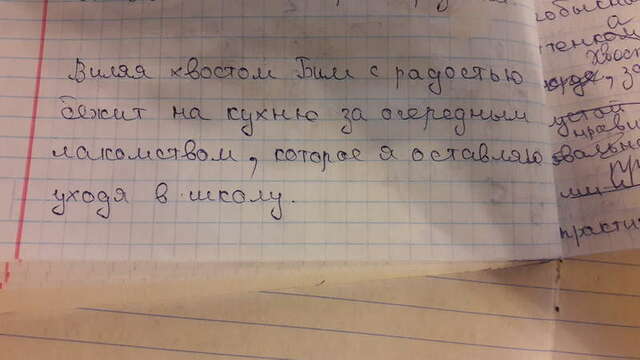 Виляя хвостом Бим с радостью
бежит на кухню за очередным
лакомством, которое я оставляю
уходя в школу.